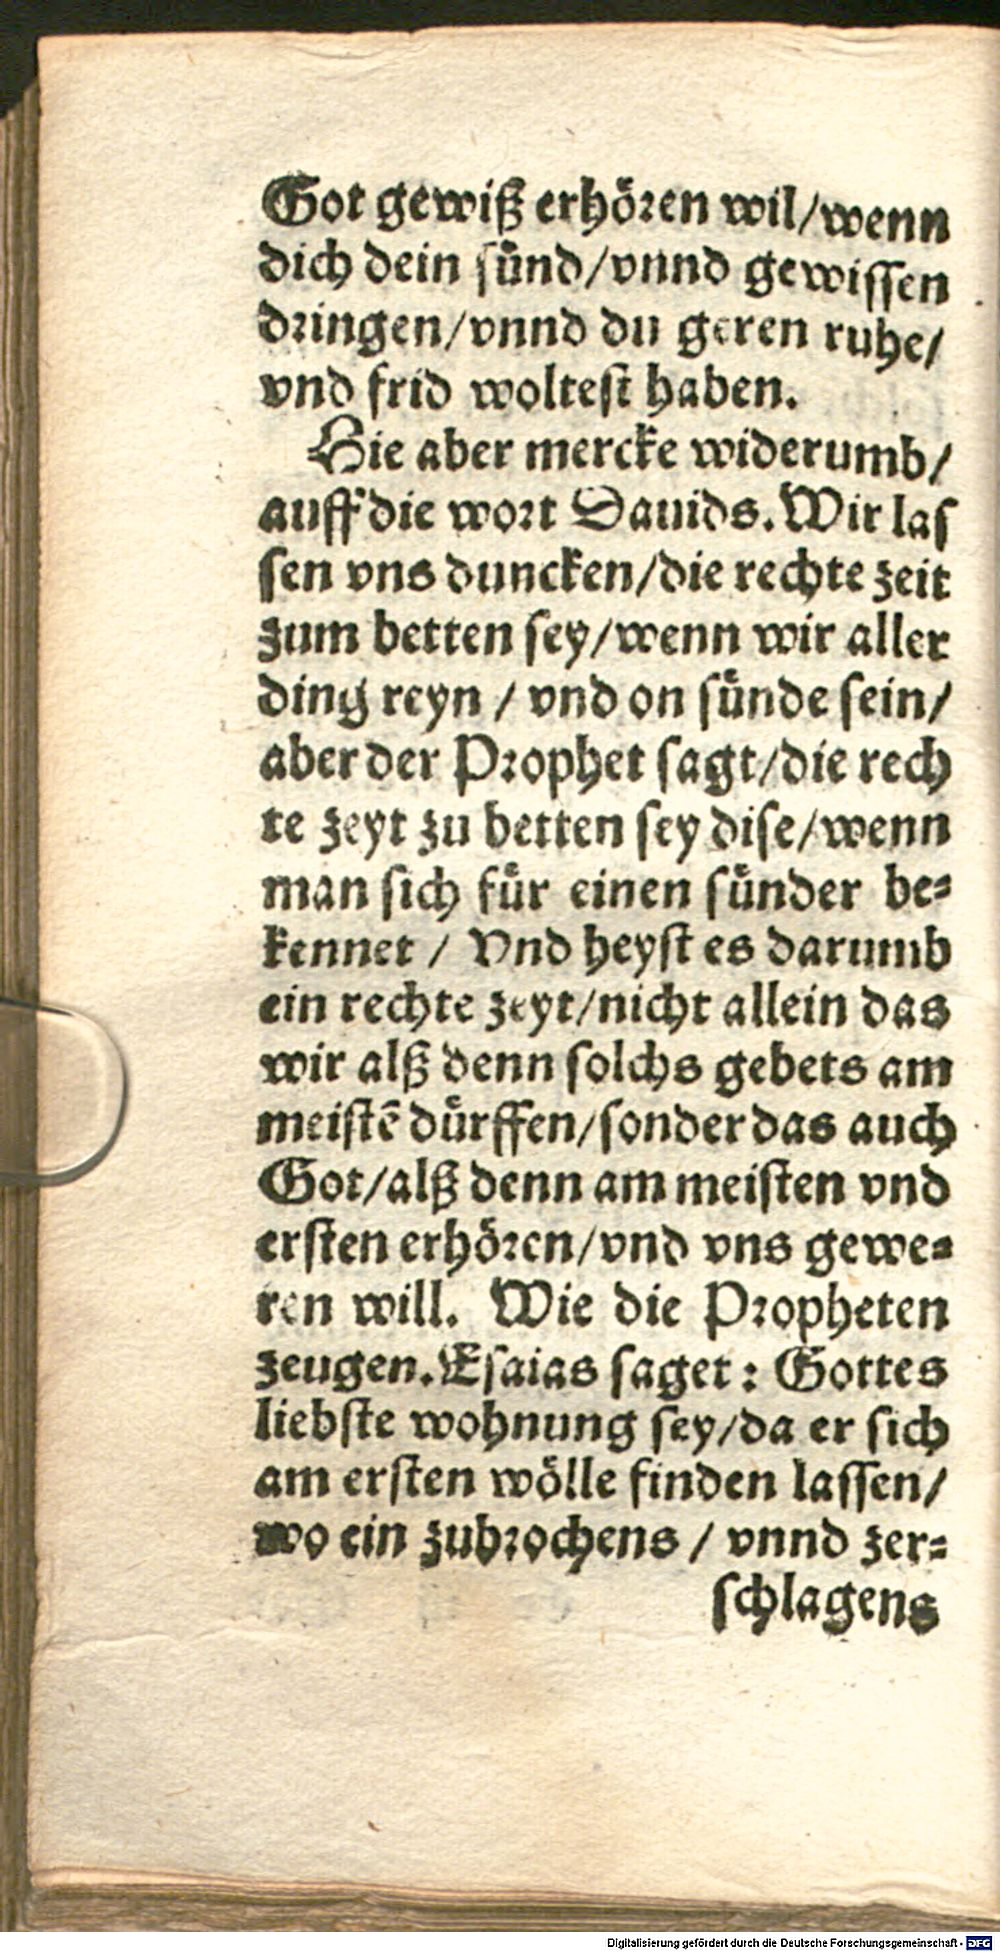 Got gewiß erhören wil/wenn
dich dein sünd/vnnd gewissen
dringen/vnnd du geren ruhe/
vnd frid woltest haben.
Hie aber mercke widerumb/
auff die wort Dauids. Wir las
sen vns duncken/die rechte zeit
zum betten sey/wenn wir aller
ding reyn / vnd on sünde sein/
aber der Prophet sagt/die rech
te zeyt zu betten sey dise/wenn
man sich für einen sünder be⸗
kennet / Vnd heyst es darumb
ein rechte zeyt/nicht allein das
wir alß denn solchs gebets am
meistē dürffen/sonder das auch
Got/alß denn am meisten vnd
ersten erhören/vnd vns gewe⸗
ren will. Wie die Propheten
zeugen. Esaias saget: Gottes
liebste wohnung sey/da er sich
am ersten wölle finden lassen/
wo ein zubrochens / vnnd zer⸗
schlagens
Digitalisierung gefördert durch die Deutsche Forschungsgemeinschaft - DFG